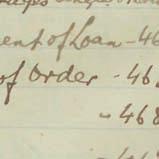 ent of Loan - 46
of Order - 46
- 468
- 46